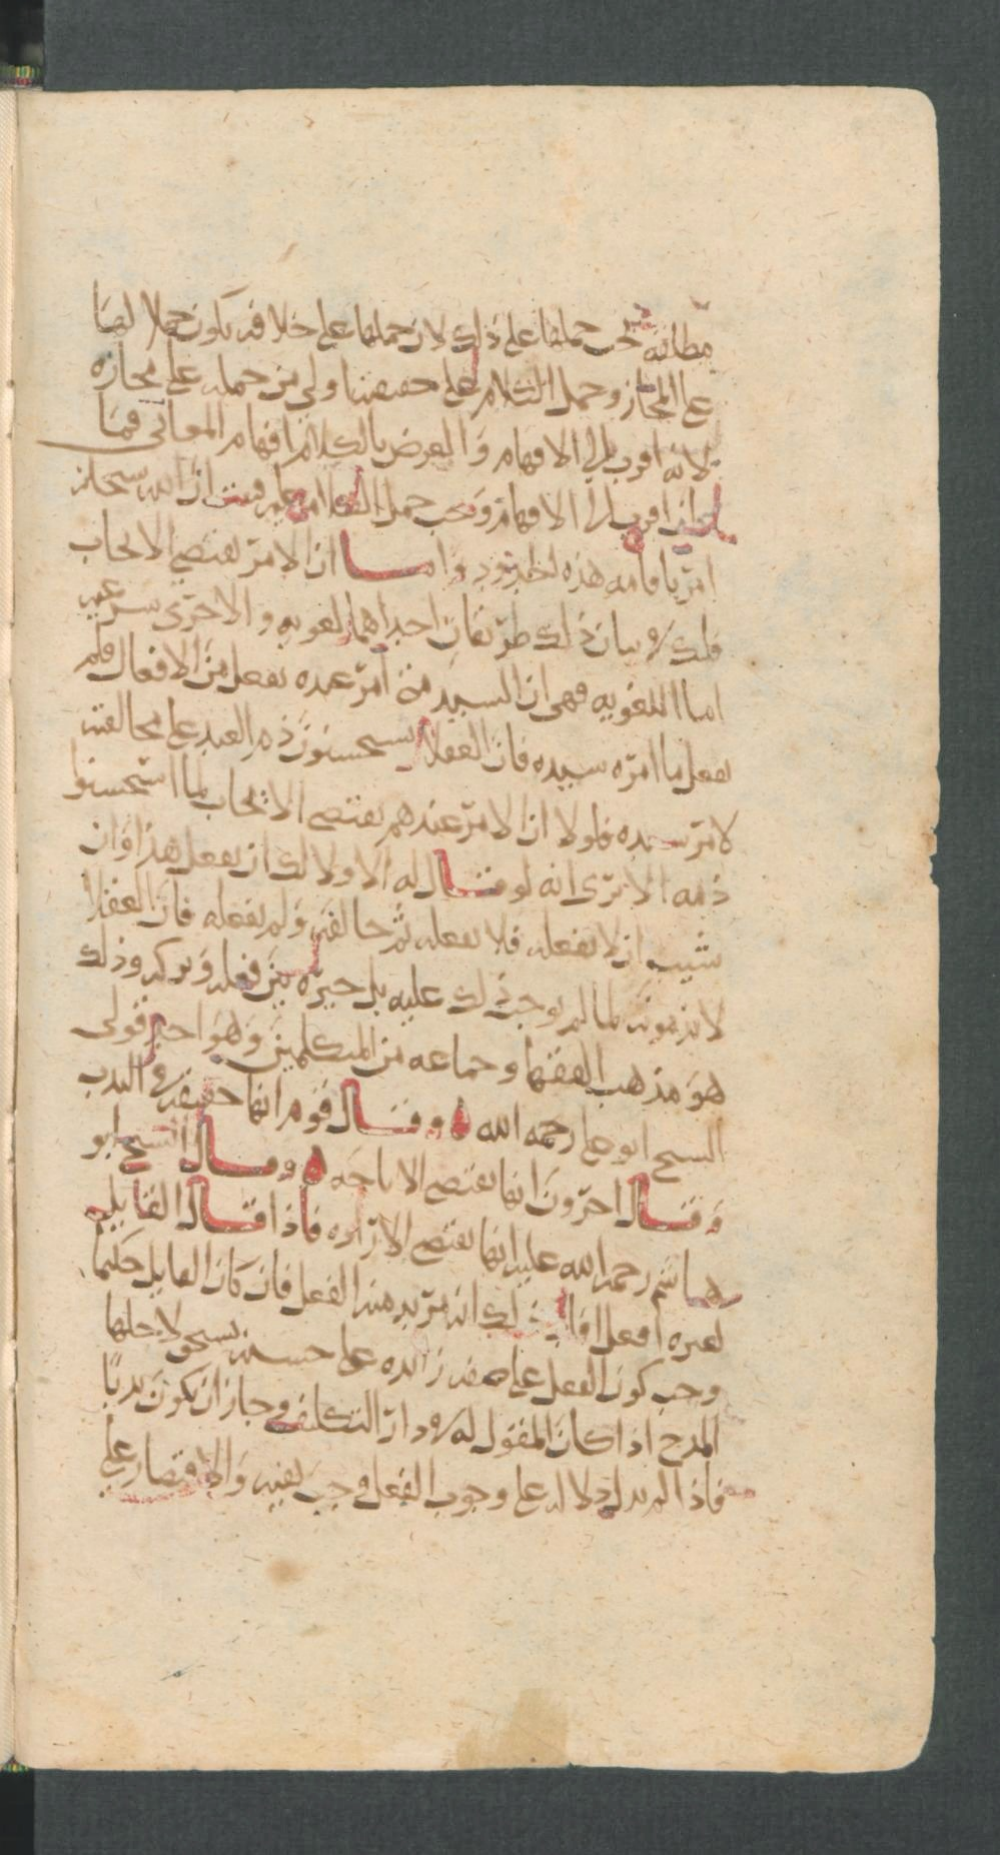 مطابقه يجب حملها على ذلك لان حملها على خلافه يكون حملا لها
على المجاز وحمل الكلام على حقيقته اولى من حمله على مجازه
لانه اقرب الى الافهام والغرض بالكلام افهام المعاني فما
كان اقرب الى الافهام وجب حمل الكلام عليه فثبت ان الله سبحانه
امر باقامه هذه الحدود واما ان الامر يقتضي الايجاب
فلنا في بيان ذلك طريقان احداهما لغويه والاخرى شرعيه
اما اللغويه فهي ان السيد متى امر عبده بفعل من الافعال فلم
يفعل ما امره سيده فان العقلا يستحسنون ذم العبد على مخالفته
لامر سيده فلولا ان الامر عندهم يقتضي الايجاب لما استحسنوا
ذمه الا ترى انه لو قال له الاولى لك ان تفعل هذا وان
شيت ان لا تفعله فلا تفعله ثم خالفه ولم يفعله فان العقلا
لا يذمونه لما لم يوجب ذلك عليه بل خيره بين فعله وتركه وذلك
هو مذهب الفقها وجماعه من المتكلمين وهو احد قولي
الشيخ ابو علي رحمه الله وقال قوم انها حقيقه في الندب
وقال اخرون انها تقتضي الاباحه وقال الشيخ ابو
هاشم رحمه الله عليه انها تقتضي الاراده فاذا قال القايل
لغيره افعل افاد ذلك انه مريد منه الفعل فان كان القايل حكيما
وجب كون الفعل على صفه زايده على حسنه يستحق لاجلها
المدح اذا كان المقول له في دار التكليف وجاز ان يكون ندبا
فاذا لم يدل دلاله على وجوب الفعل وجب نفيه والاقتصار على